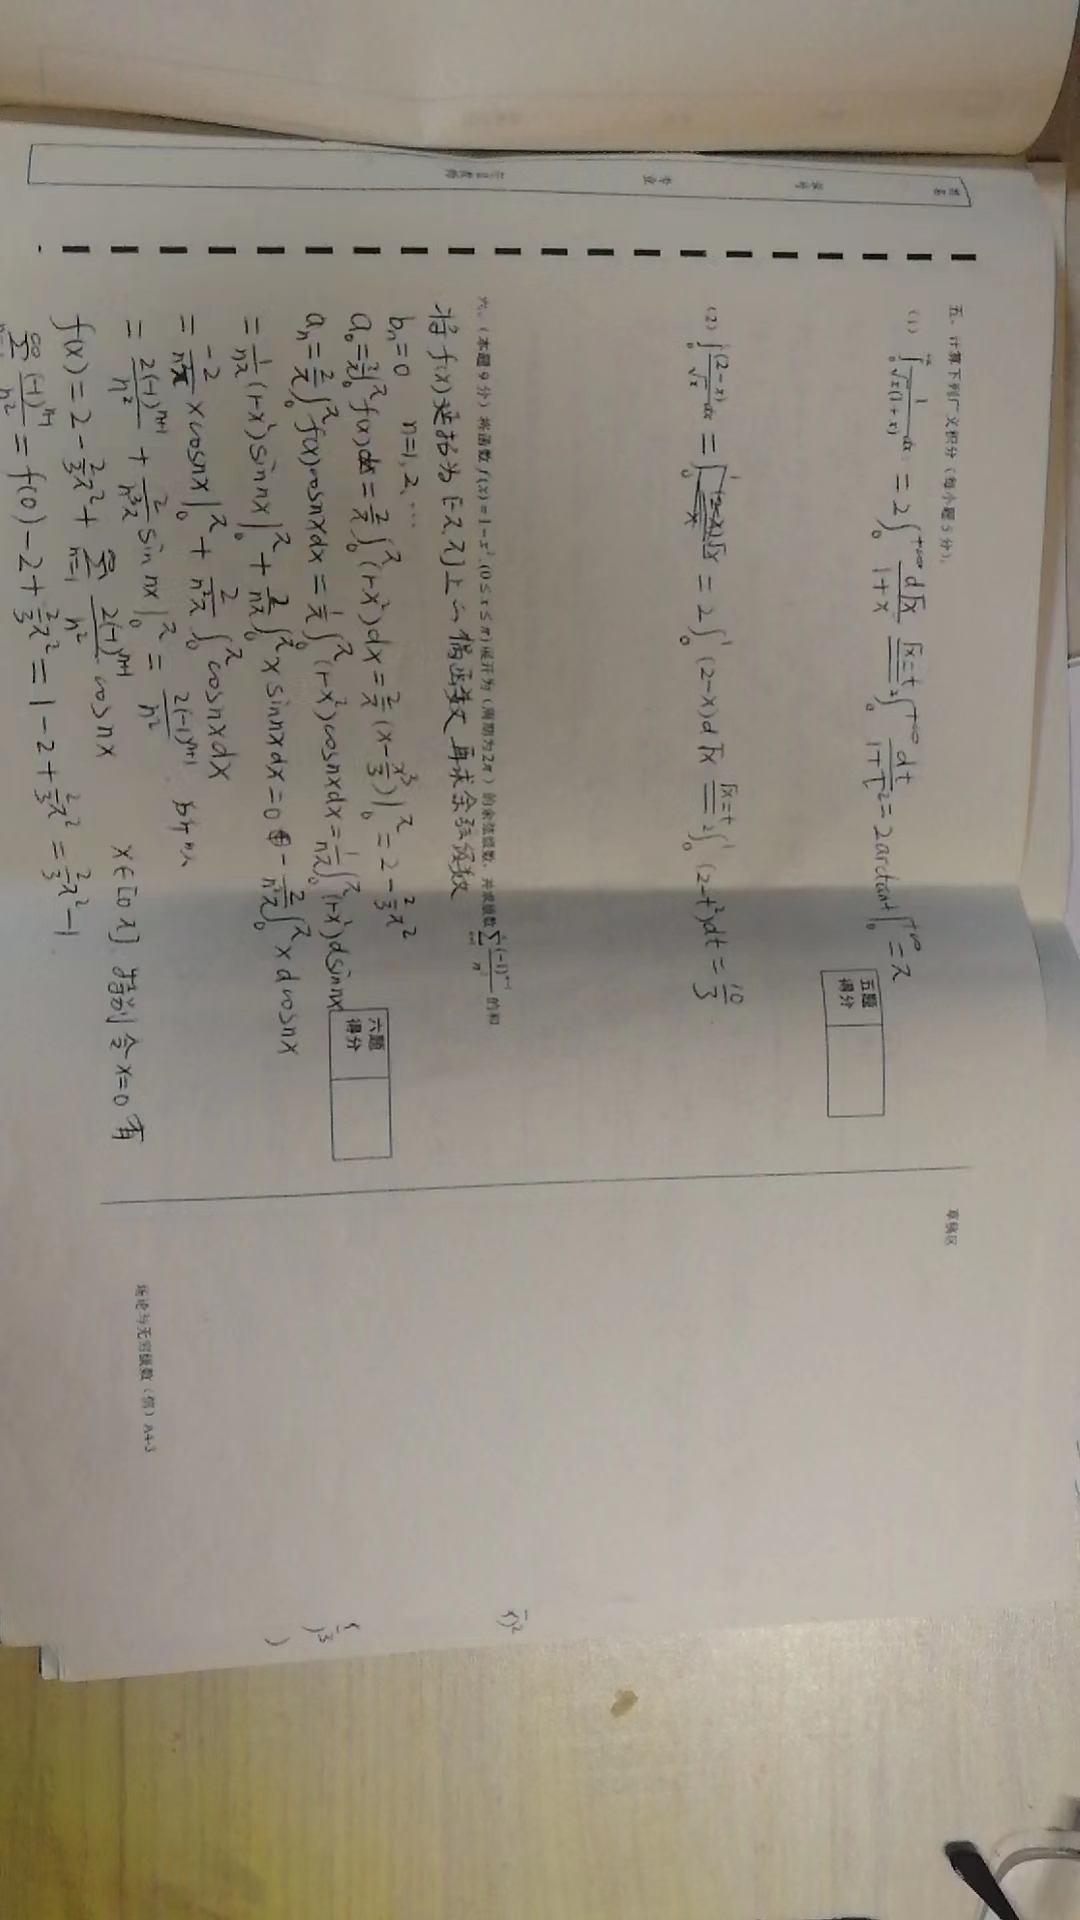 姓名
学号
专业
任课教师
五、计算下列广义积分（每小题5分）。
(1) ∫₀^{+∞} 1/(√x(1+x)) dx = 2∫₀^{+∞} d√x/(1+x) =(√x=t)= 2∫₀^{+∞} dt/(1+t²) = 2arctan t |₀^{+∞} = π
五题
得分
(2) ∫₀^1 (2-x)/√x dx = = 2∫₀^1 (2-x)d√x =(√x=t)= 2∫₀^1 (2-t²)dt = 10/3
六、（本题9分）将函数 f(x)=1-x², (0≤x≤π)展开为（周期为2π）的余弦级数，并求级数 ∑ (-1)^{n-1}/n² 的和
将 f(x) 延拓为 [-π,π] 上 偶函数 再求余弦级数
bₙ=0 n=1,2,…
a₀ = 2/π ∫₀^π f(x)dx = 2/π ∫₀^π (1-x²)dx = 2/π (x - x³/3)|₀^π = 2 - 2/3 π²
六题
得分
aₙ = 2/π ∫₀^π f(x)cosnxdx = 1/π ∫₀^π (1-x²)cosnxdx = 1/(nπ) ∫₀^π (1-x²)dsinnx
= 1/(nπ) (1-x²)sinnx|₀^π + 2/(nπ) ∫₀^π x sinnxdx = 0 - 2/(n²π) ∫₀^π x dcosnx
= -2/(n²π) xcosnx|₀^π + 2/(n²π) ∫₀^π cosnxdx
= 2(-1)^{n+1}/n² + 2/(n³π) sin nx|₀^π = 2(-1)^{n+1}/n² . 所以
f(x) = 2 - 2/3 π² + ∑_{n=1}^∞ 2(-1)^{n+1}/n² cosnx x∈[0 π] 特别 令 x=0 有
∑_{n=1}^∞ (-1)^{n-1}/n² = f(0) - 2 + 2/3 π² = 1 - 2 + 2/3 π² = 2/3 π² - 1
草稿区
场论与无穷级数（信）A4-3